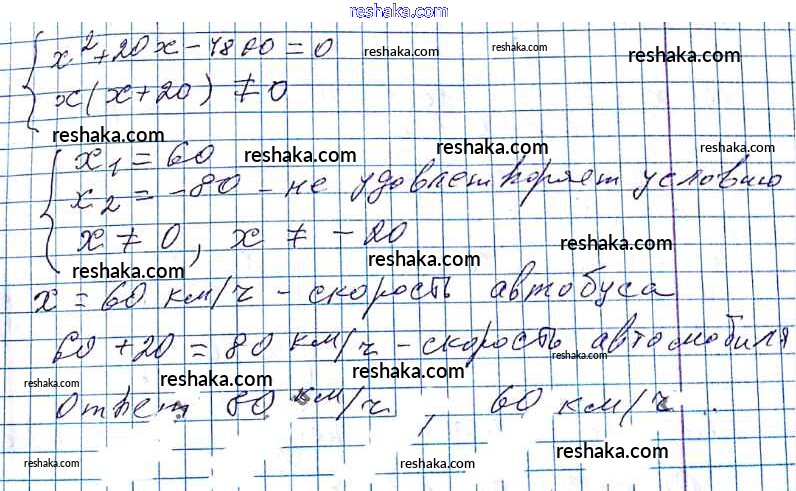 reshaka.com
{ x² + 20x - 4800 = 0
reshaka.com reshaka.com
x(x+20) ≠ 0
reshaka.com reshaka.com reshaka.com
{ x₁ = 60
x₂ = -80 - не удовлетворяет условию
x ≠ 0, x ≠ -20
reshaka.com reshaka.com reshaka.com
x = 60 км/ч - скорость автобуса
reshaka.com reshaka.com
60 + 20 = 80 км/ч - скорость автомобиля
reshaka.com reshaka.com reshaka.com
Ответ 80 км/ч, 60 км/ч.
reshaka.com reshaka.com reshaka.com